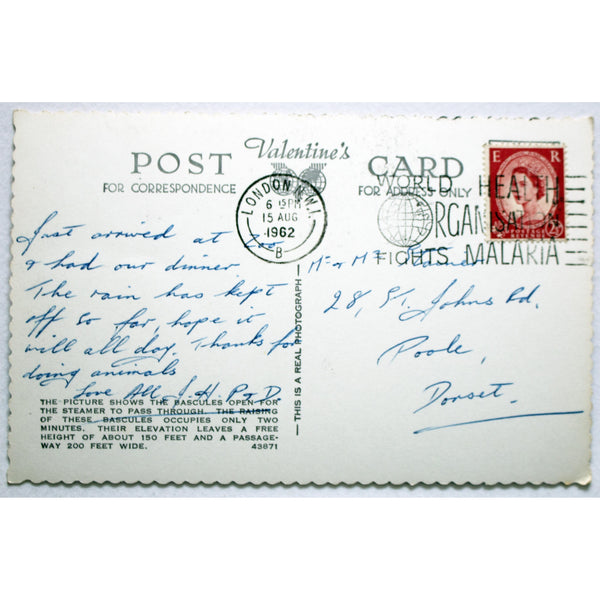 POST Valentine's CARD
FOR CORRESPONDENCE FOR ADDRESS ONLY
LONDON N.W.1.
6 15 PM
15 AUG
1962
B
WORLD HEALTH
ORGANISATION
FIGHTS MALARIA
E R
Just arrived at Zoo
& had our dinner.
The rain has kept
off so far, hope it
will all day. Thanks for
doing animals
Love All, J. H. P & D.
THE PICTURE SHOWS THE BASCULES OPEN FOR
THE STEAMER TO PASS THROUGH. THE RAISING
OF THESE BASCULES OCCUPIES ONLY TWO
MINUTES. THEIR ELEVATION LEAVES A FREE
HEIGHT OF ABOUT 150 FEET AND A PASSAGE-
WAY 200 FEET WIDE. 43871
THIS IS A REAL PHOTOGRAPH
Mr & Mrs
28, St. Johns Rd,
Poole,
Dorset.